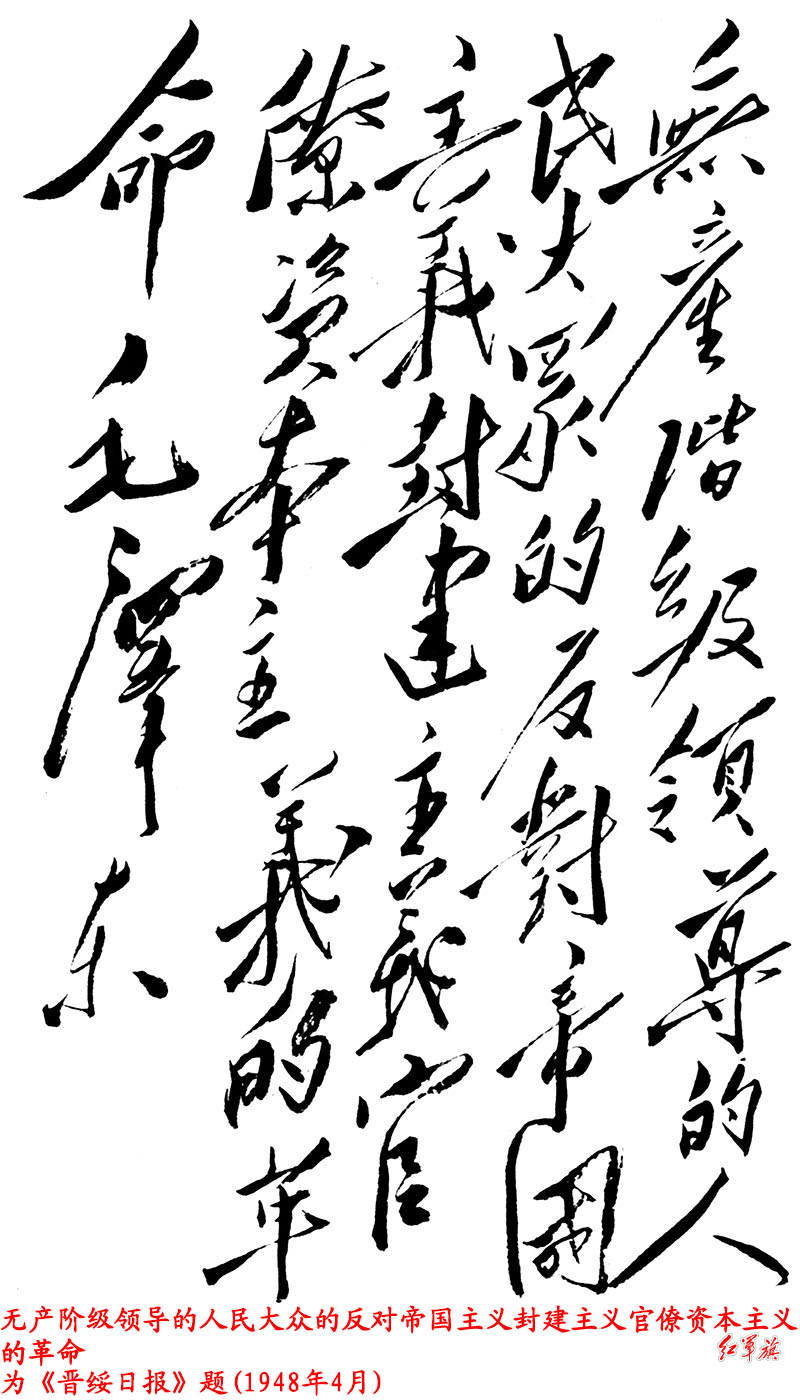 無產階級領導的人
民大眾的反對帝國
主義封建主義官
僚資本主義的革
命 毛澤东
无产阶级领导的人民大众的反对帝国主义封建主义官僚资本主义
的革命
为《晋绥日报》题(1948年4月)
红军旗